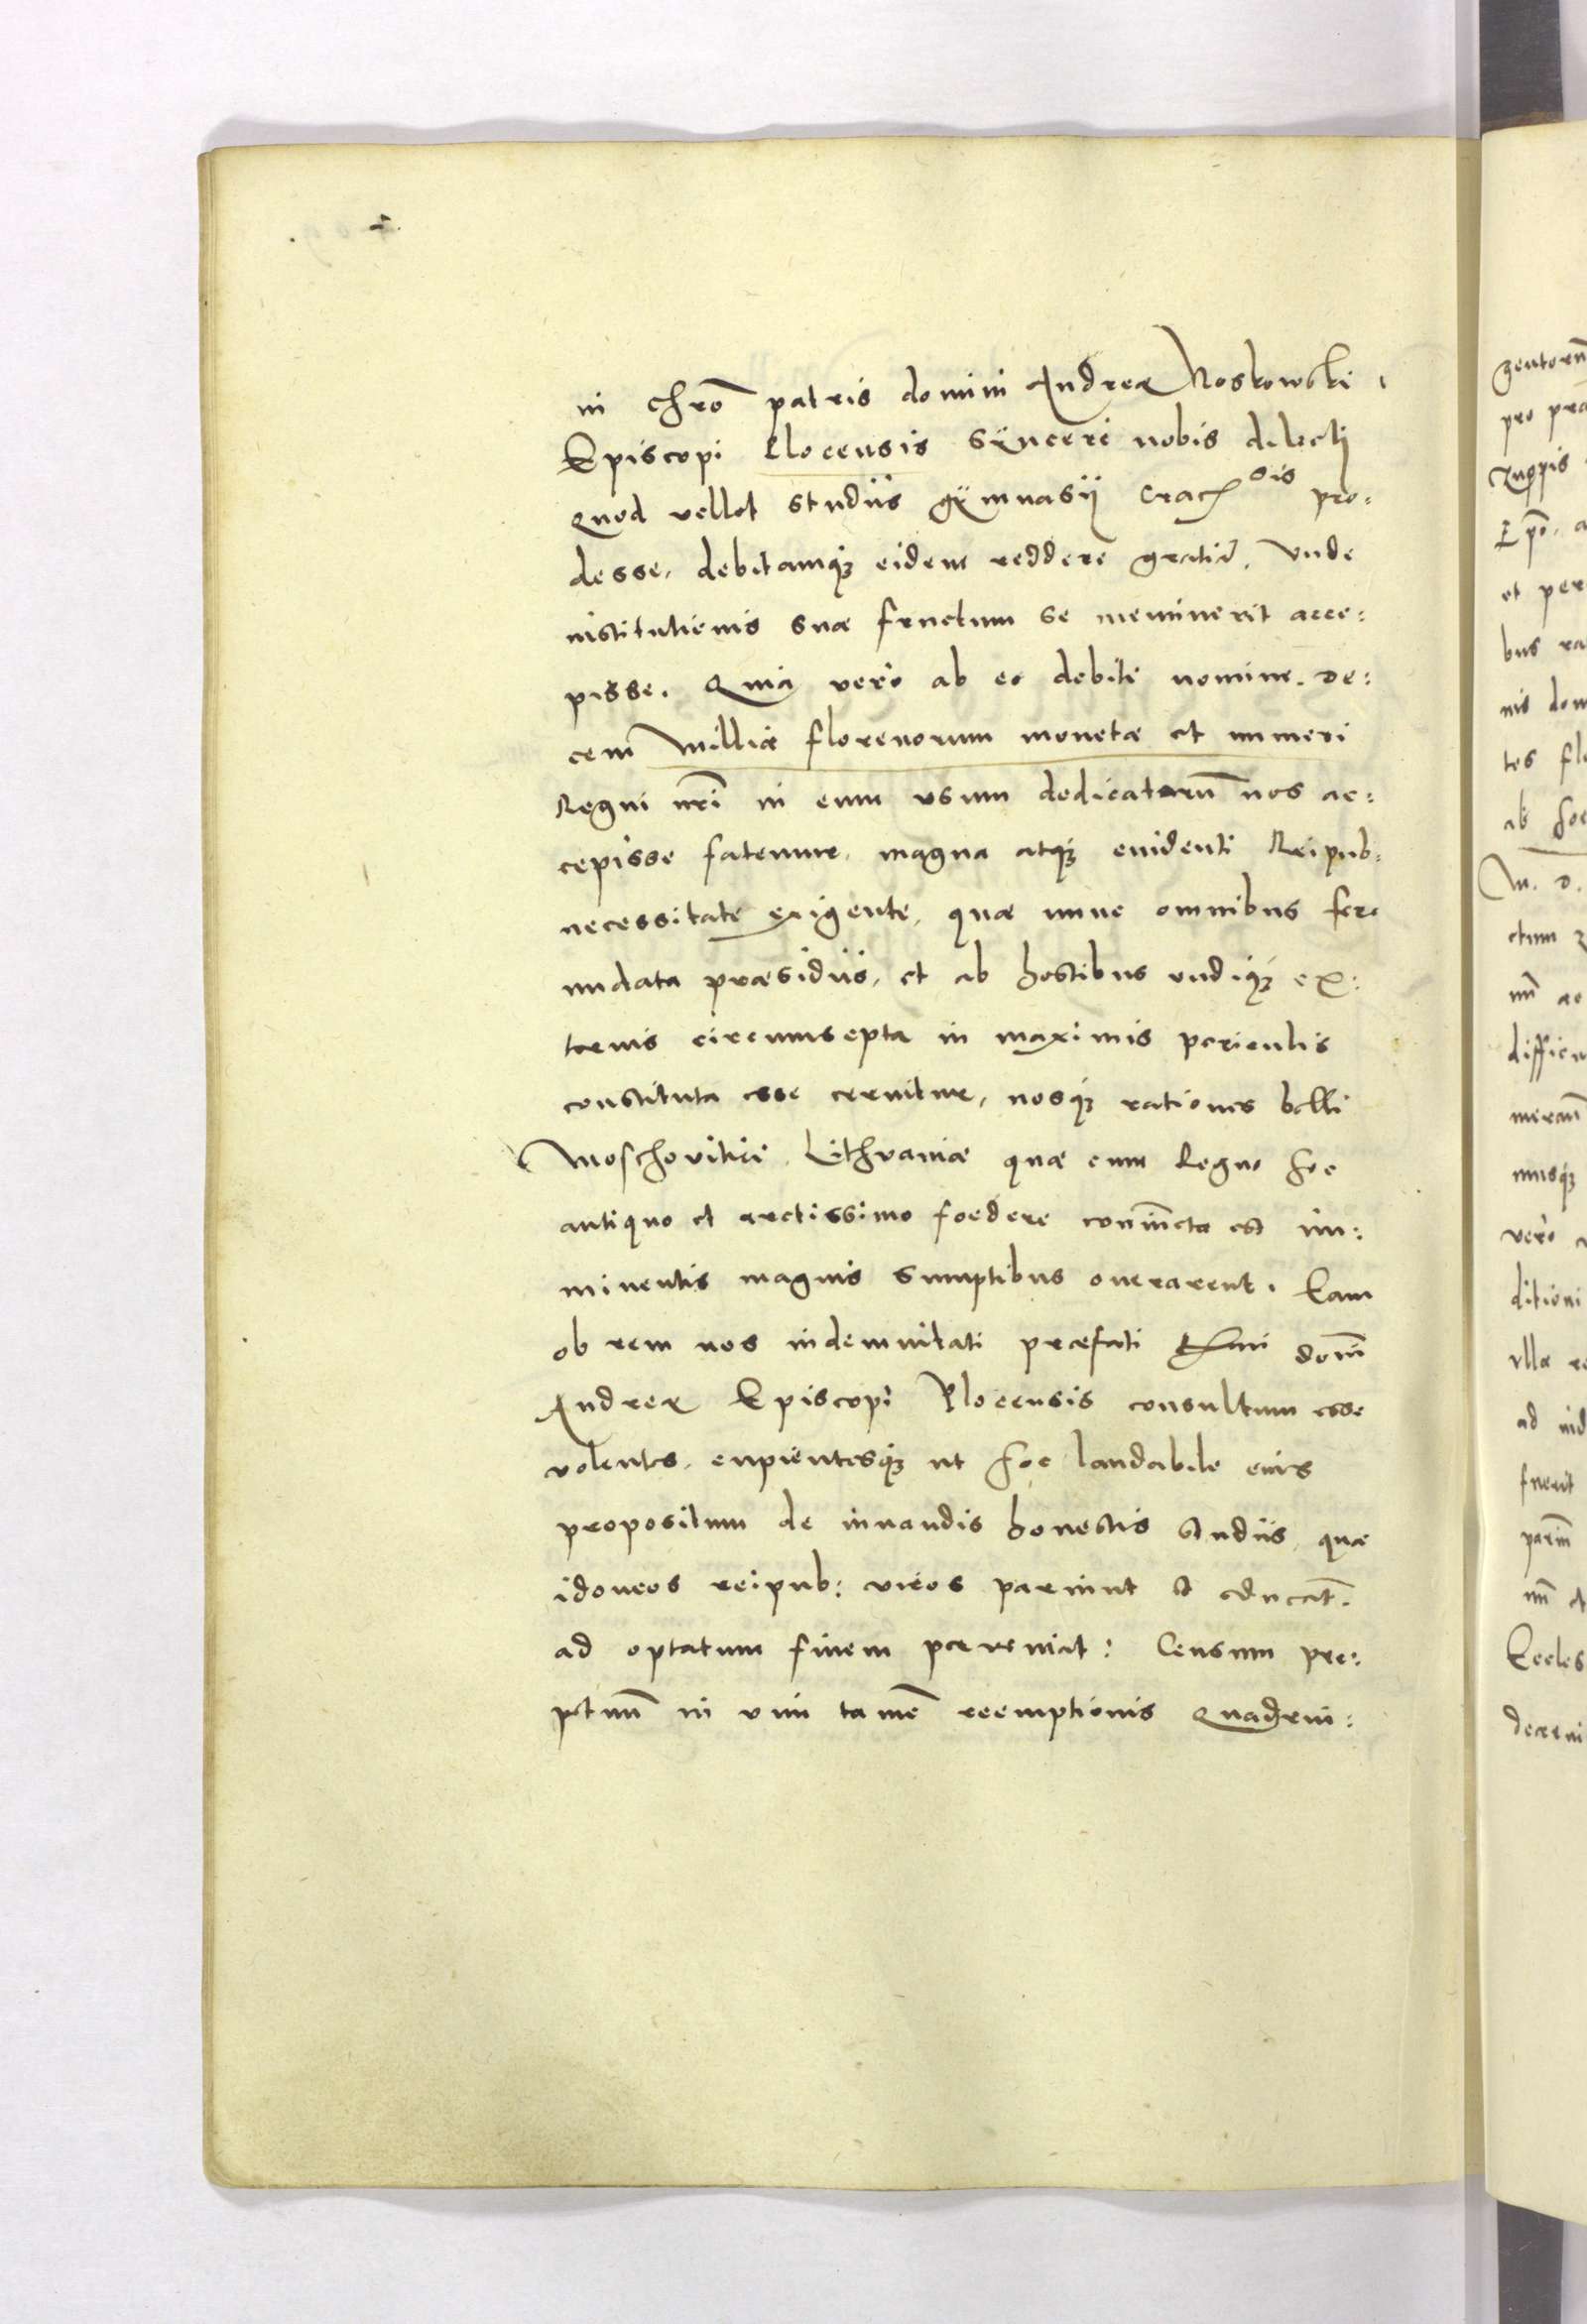 in chrō patris domini Andreæ Noskowski
Episcopi Plocensis sÿnceri nobis dilecti
quod vellet studiis gÿmnasij Crac^sis pro:
desse, debitamq; eidem reddere gratiā, unde
institutionis suæ fructum se meminerit acce:
pisse. Quia vero ab eo debiti nomine de:
cem millia florenorum monetæ et numeri
Regni nrī in eum usum dedicatorū nos ac:
cepisse fatemur, magna atq; evidenti Reipub:
necessitate exigente, quæ nunc omnibus fere
nudata præsidiis, et ab hostibus undiq; ex:
ternis circumsepta in maximis periculis
constituta esse cernitur, nosq; rationes belli
Moschovitici Lithvaniæ quæ cum Regno hoc
antiquo et arctissimo foedere coniūcta est im:
minentis magnis sumptibus onerarent. Eam
ob rem nos indemnitati præfati domī
Andreæ Episcopi Plocensis consultum esse
volentes, cupientesq; ut hoc laudabile eius
propositum de iuvandis honestis studiis, quæ
idoneos reipub: viros pariunt et educāt.
ad optatum finem perveniat: Censum per:
petuū in vim tamē reemptionis quadrin:
gentorū
pro præ
Zuppis
Epō. a
et per
bus ra
nis dom
tes flo
ab hoc
M. D.
ctum
nū ac
difficu
merum
nusq;
vero
ditioni
ulla re
ad ind
fuerit
parum
nū et
Eccles
decerni